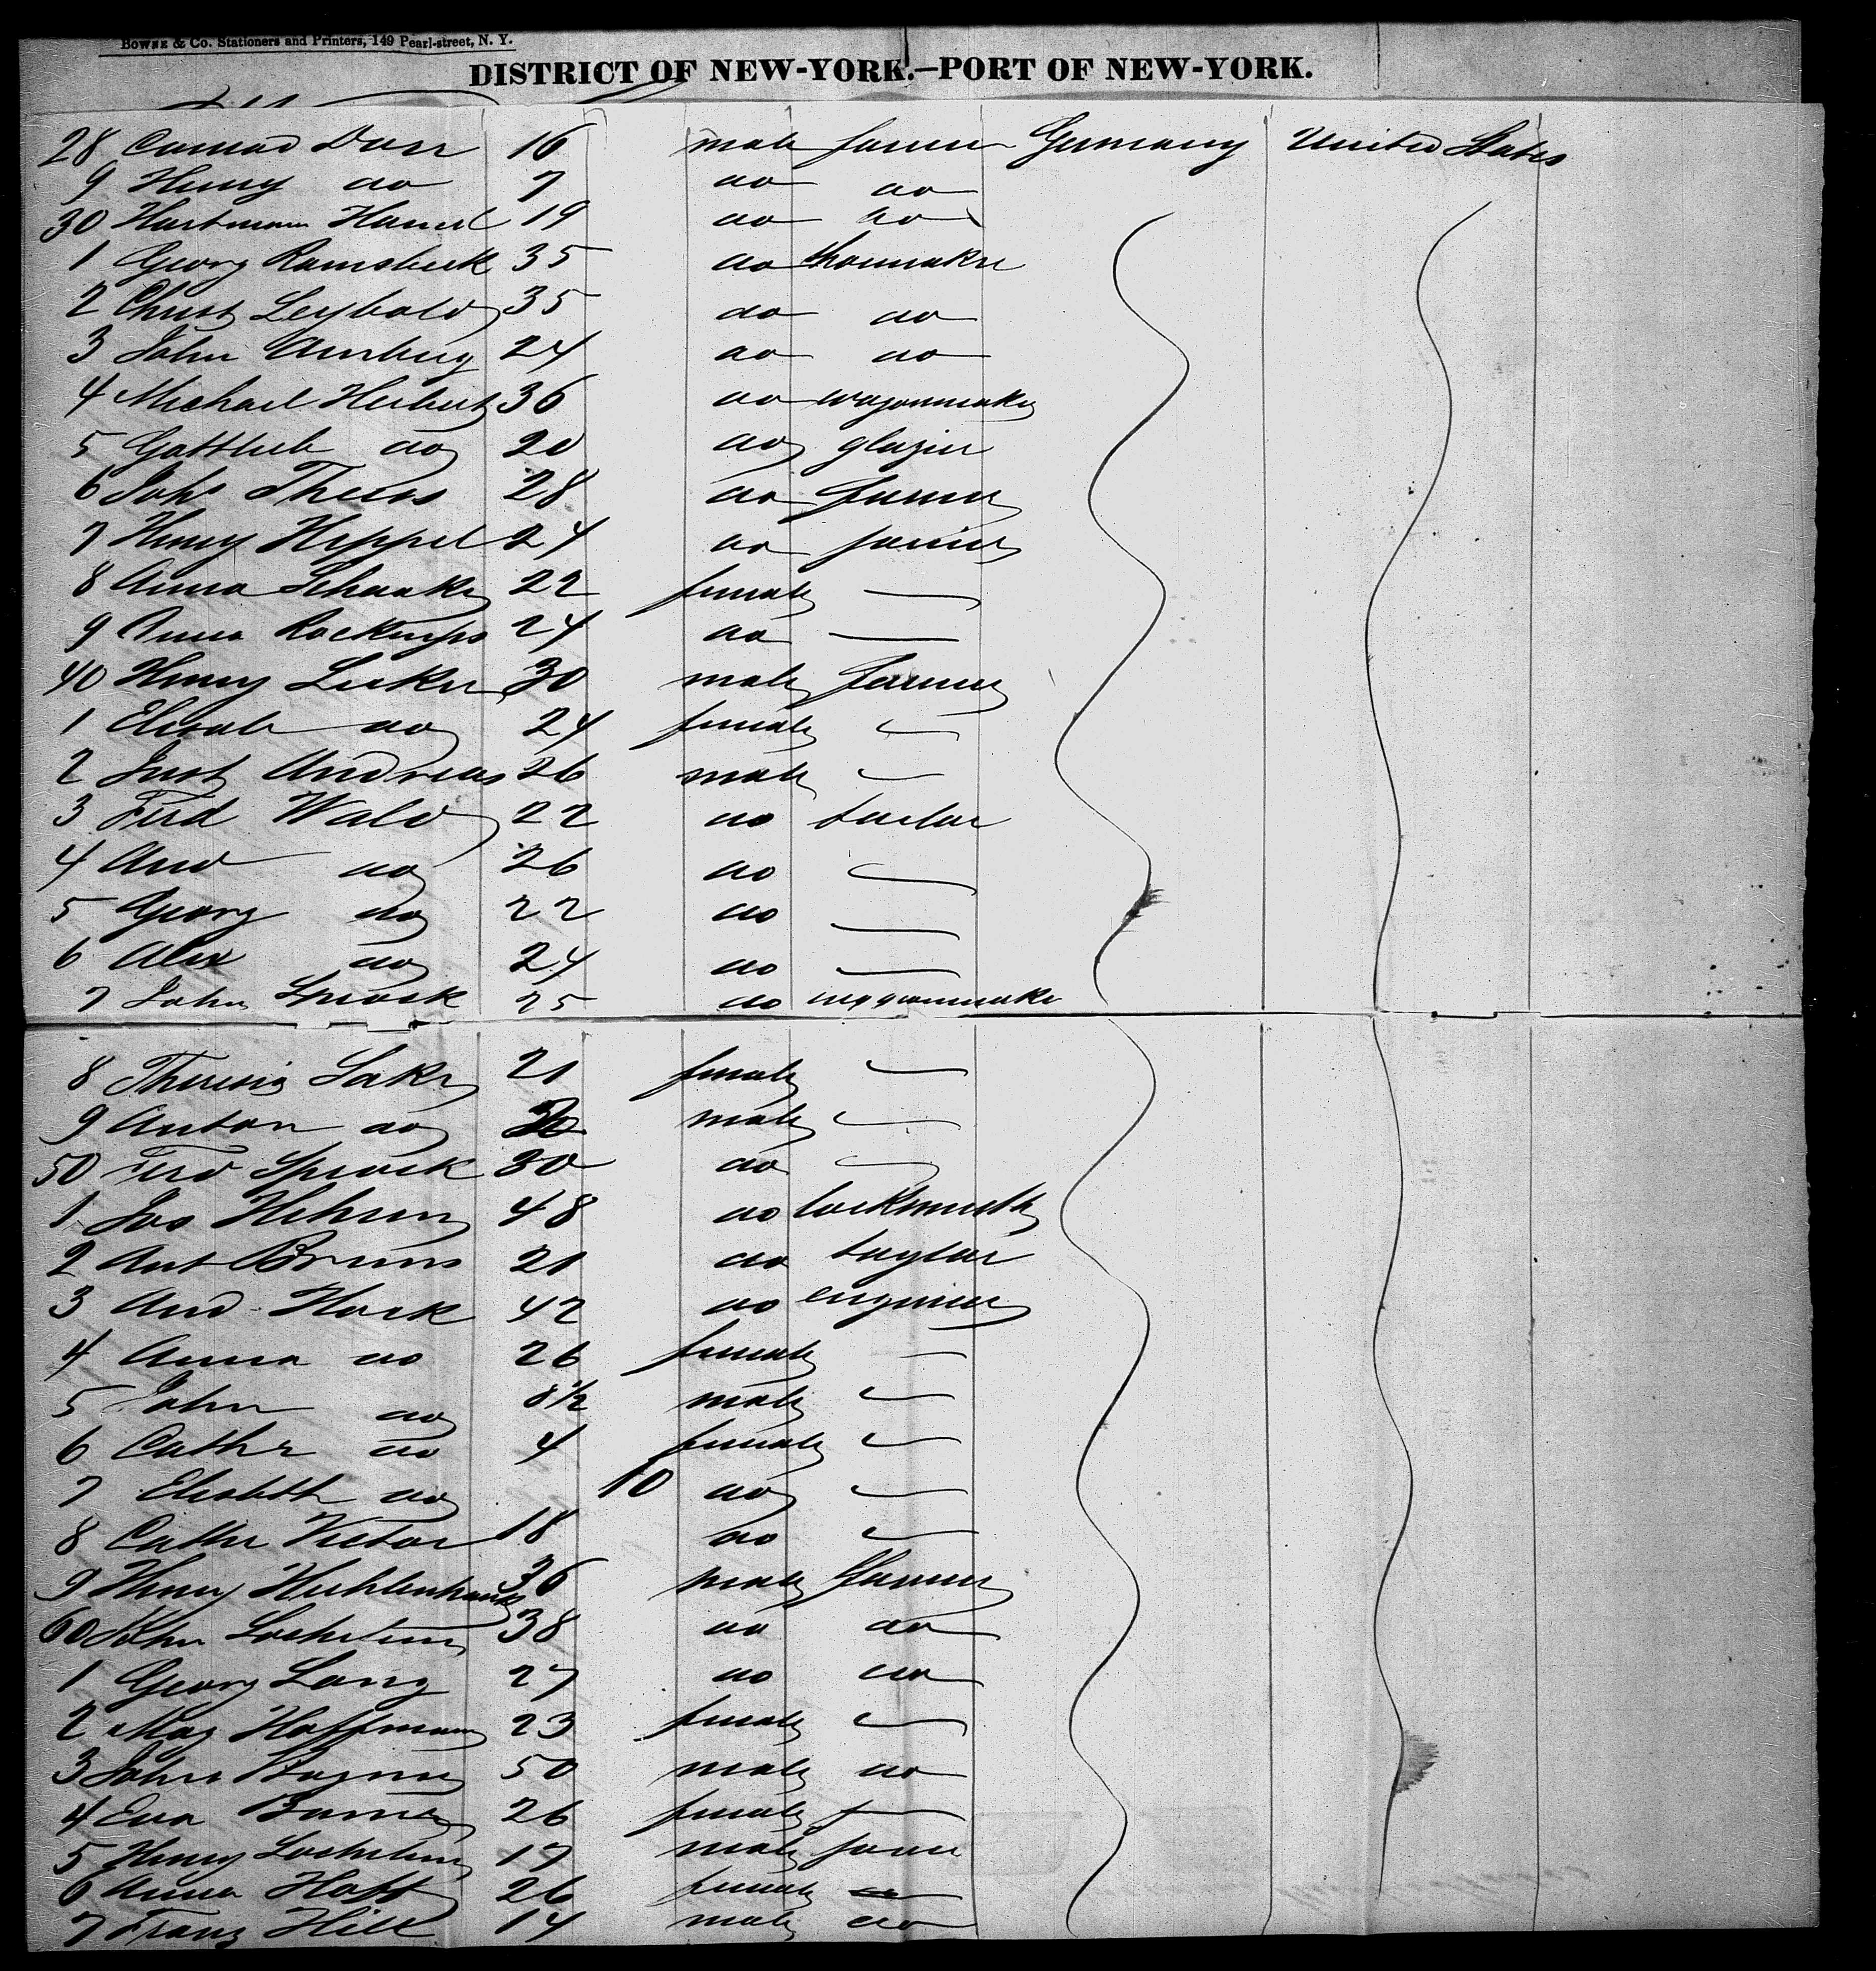 BOWNE & Co. Stationers and Printers, 149 Pearl-street, N. Y.
DISTRICT OF NEW-YORK.—PORT OF NEW-YORK.
28 Conrad Dorr 16 male farmer Germany United States
9 Henry do 7 do do
30 Hartmann 19 do do
1 Georg Ramsbeck 35 do shoemaker
2 Christ Leybold 35 do do
3 John 24 do do
4 Michael Herbert 36 do wagonmaker
5 Gottlieb do 20 do glazier
6 Joh. Theos 28 do farmer
7 Henry Heppel 24 do farmer
8 Anna 22 female —
9 Anna 24 do —
40 Henry 30 male farmer
1 do 24 female —
2 Just Andreas 26 male —
3 Ferd Wald 22 do tailor
4 And do 26 do —
5 Georg do 22 do —
6 Alex do 24 do —
7 John 25 do waggonmaker
8 Theresia 21 female —
9 Anton do male —
50 Ferd 30 do —
1 Jos 48 do locksmith
2 Ant Bruns 21 do taylor
3 And Hock 42 do engineer
4 Anna do 26 female —
5 John do 8½ male —
6 Cathr do 4 female —
7 Elisabeth do 10 do —
8 Cathr Victor 18 do —
9 Henry 36 male farmer
60 John 38 do do
1 Georg Lang 27 do do
2 Mag Hoffmann 23 female —
3 John Wagner 50 male do
4 Eva 26 female —
5 Henry 17 male farmer
6 Anna Hoff 26 female
7 Franz Hill 14 male do